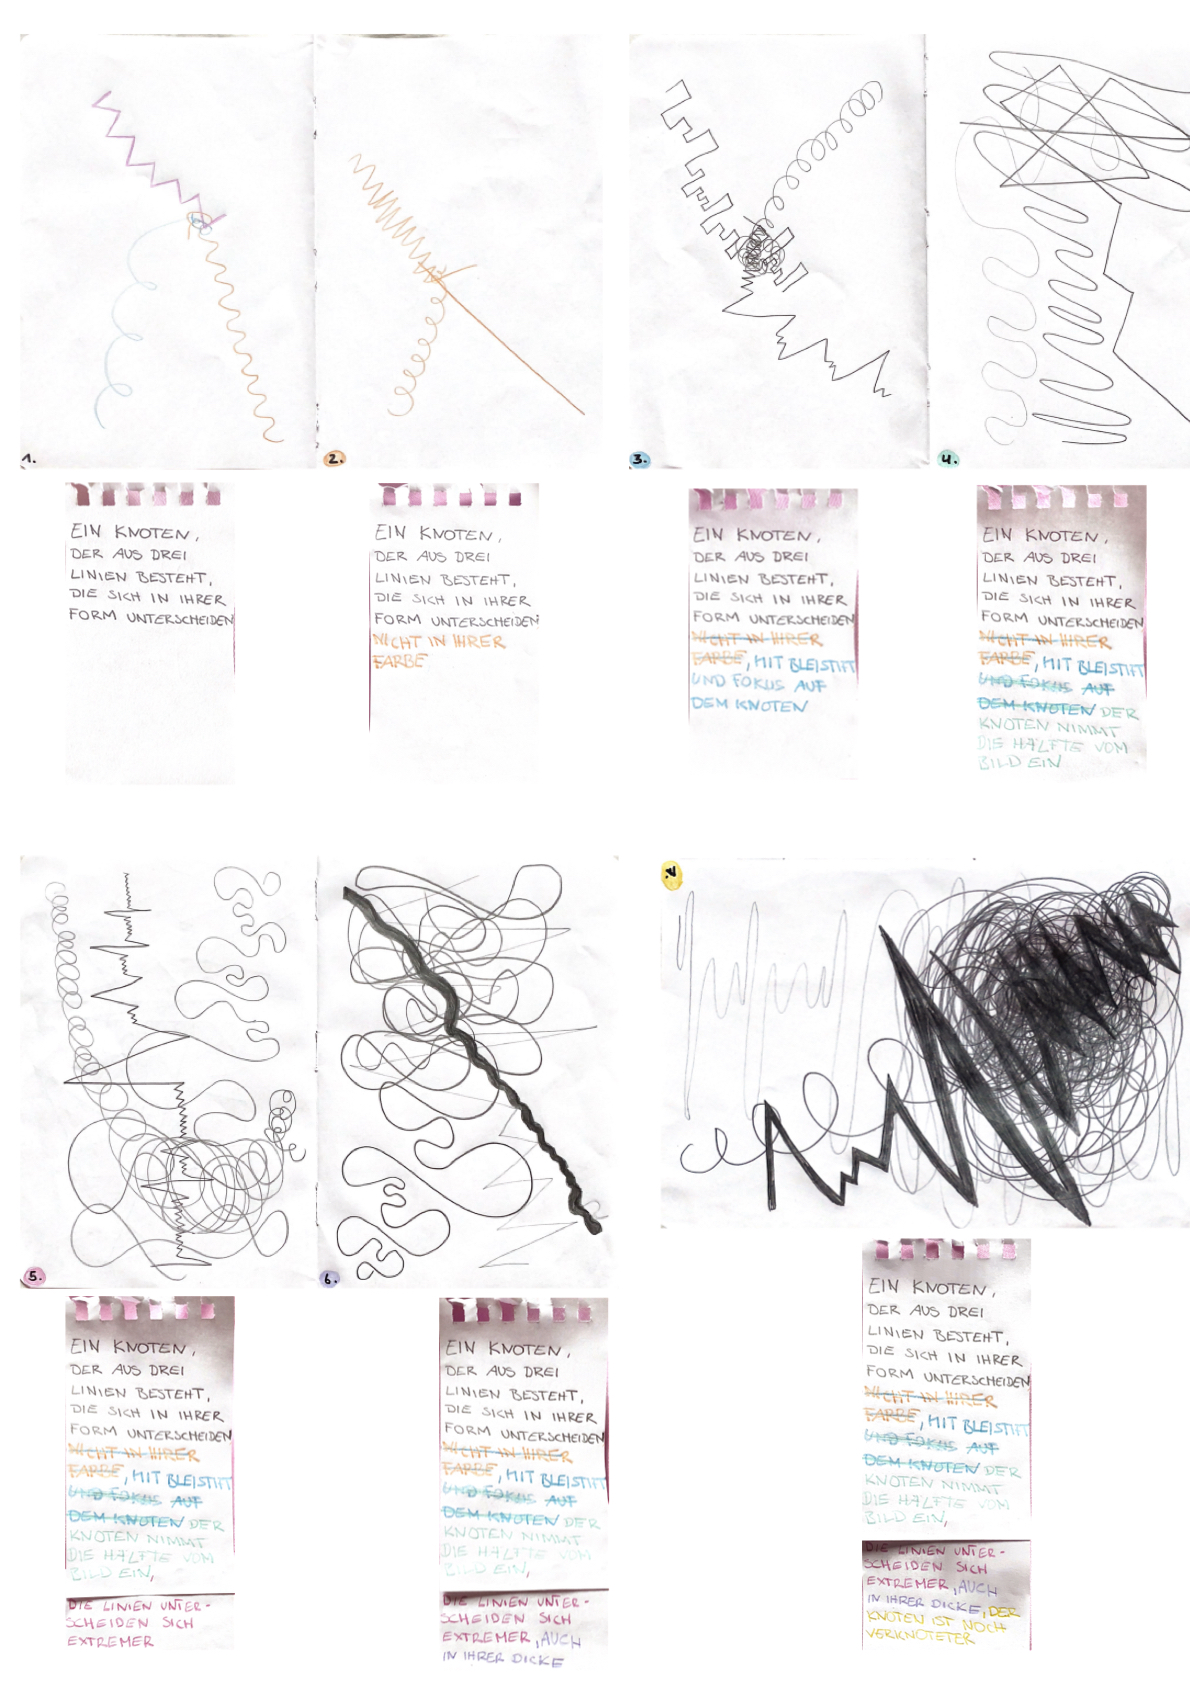 1.
2.
3.
4.
EIN KNOTEN,
DER AUS DREI
LINIEN BESTEHT,
DIE SICH IN IHRER
FORM UNTERSCHEIDEN
EIN KNOTEN,
DER AUS DREI
LINIEN BESTEHT,
DIE SICH IN IHRER
FORM UNTERSCHEIDEN
NICHT IN IHRER
FARBE
EIN KNOTEN,
DER AUS DREI
LINIEN BESTEHT,
DIE SICH IN IHRER
FORM UNTERSCHEIDEN
NICHT IN IHRER
FARBE, MIT BLEISTIFT
UND FOKUS AUF
DEM KNOTEN
EIN KNOTEN,
DER AUS DREI
LINIEN BESTEHT,
DIE SICH IN IHRER
FORM UNTERSCHEIDEN
NICHT IN IHRER
FARBE, MIT BLEISTIFT
UND FOKUS AUF
DEM KNOTEN DER
KNOTEN NIMMT
DIE HÄLFTE VOM
BILD EIN
5.
6.
7.
EIN KNOTEN,
DER AUS DREI
LINIEN BESTEHT,
DIE SICH IN IHRER
FORM UNTERSCHEIDEN
NICHT IN IHRER
FARBE, MIT BLEISTIFT
UND FOKUS AUF
DEM KNOTEN DER
KNOTEN NIMMT
DIE HÄLFTE VOM
BILD EIN,
DIE LINIEN UNTER-
SCHEIDEN SICH
EXTREMER
EIN KNOTEN,
DER AUS DREI
LINIEN BESTEHT,
DIE SICH IN IHRER
FORM UNTERSCHEIDEN
NICHT IN IHRER
FARBE, MIT BLEISTIFT
UND FOKUS AUF
DEM KNOTEN DER
KNOTEN NIMMT
DIE HÄLFTE VOM
BILD EIN,
DIE LINIEN UNTER-
SCHEIDEN SICH
EXTREMER, AUCH
IN IHRER DICKE
EIN KNOTEN,
DER AUS DREI
LINIEN BESTEHT,
DIE SICH IN IHRER
FORM UNTERSCHEIDEN
NICHT IN IHRER
FARBE, MIT BLEISTIFT
UND FOKUS AUF
DEM KNOTEN DER
KNOTEN NIMMT
DIE HÄLFTE VOM
BILD EIN,
DIE LINIEN UNTER-
SCHEIDEN SICH
EXTREMER, AUCH
IN IHRER DICKE, DER
KNOTEN IST NOCH
VERKNOTETER